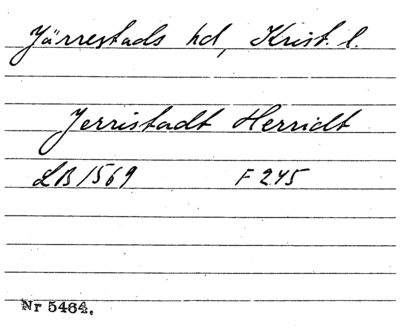 Järrestads hd, Krist. l.
Jerristadt Herridt
LB 1569 F 245
Nr 5464.